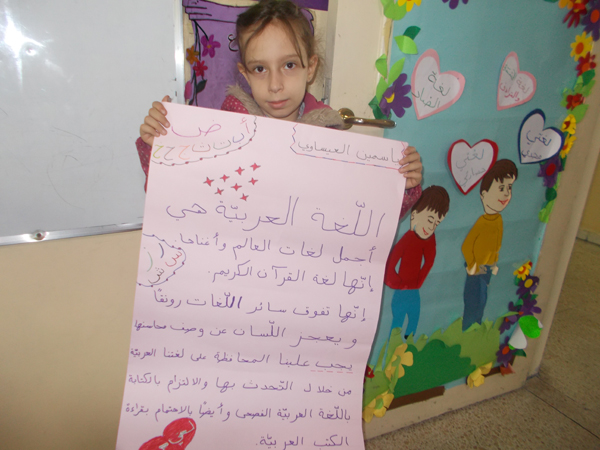 ياسمين العيساوي
ص ض
أ ب ت ث ج ح خ
اللّغة العربيّة هي
أجمل لغات العالم وأغناها.
إنّها لغة القرآن الكريم.
إنّها تفوق سائر اللّغات رونقًا
ويعجز اللّسان عن وصف محاسنها
يجب علينا المحافظة على لغتنا العربيّة
من خلال التّحدث بها والالتزام بالكتابة
باللّغة العربيّة الفصحى وأيضًا بالاهتمام بقراءة
الكتب العربيّة.
لغتي
لغة
الضاد
لغتي
لغتي